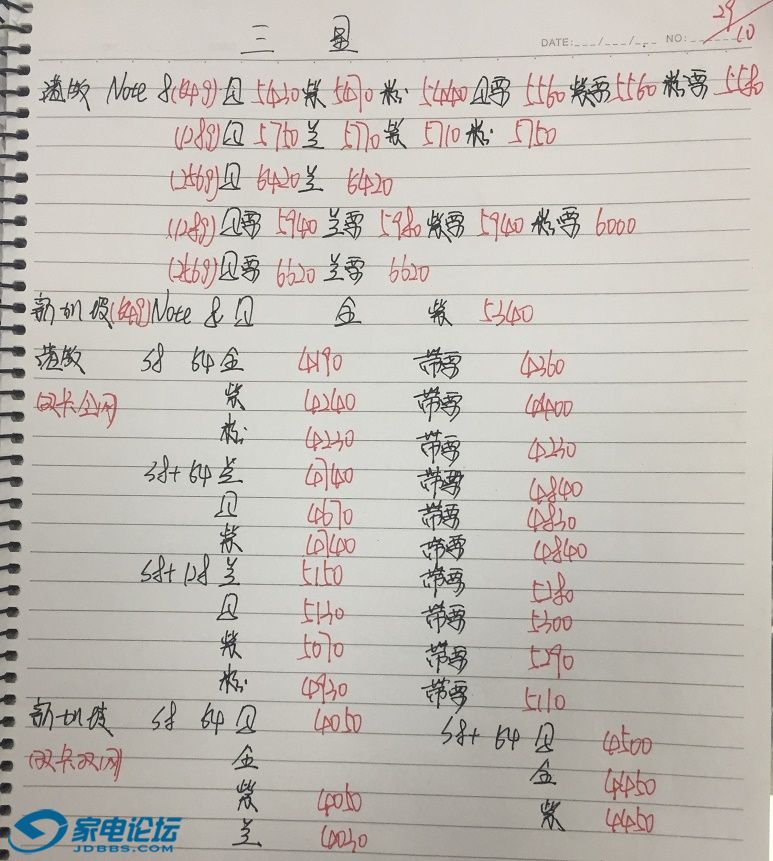 三星 DATE: / / NO: 29/10
港版 Note 8(64g) 贝 5430 紫 5470 粉 5440 贝票 5560 紫票 5560 粉票 5580
(128g) 贝 5750 兰 5770 紫 5710 粉 5750
(256g) 贝 6420 兰 6420
(128g) 贝票 5940 兰票 5980 紫票 5940 粉票 6000
(256g) 贝票 6620 兰票 6620
新加坡(64g) Note 8 贝 金 紫 5340
港版 S8 64 金 4190 带票 4360
双卡全网 紫 4240 带票 4400
粉 4230 带票 4230
S8+ 64 兰 4740 带票 4840
贝 4670 带票 4830
紫 4740 带票 4840
S8+ 128 兰 5150 带票 5280
贝 5130 带票 5300
紫 5070 带票 5290
粉 4930 带票 5110
新加坡 S8 64 贝 4050 S8+ 64 贝 4500
双卡双网 金 金 4450
紫 4050 紫 4450
兰 4030
家电论坛
JDBBS.COM